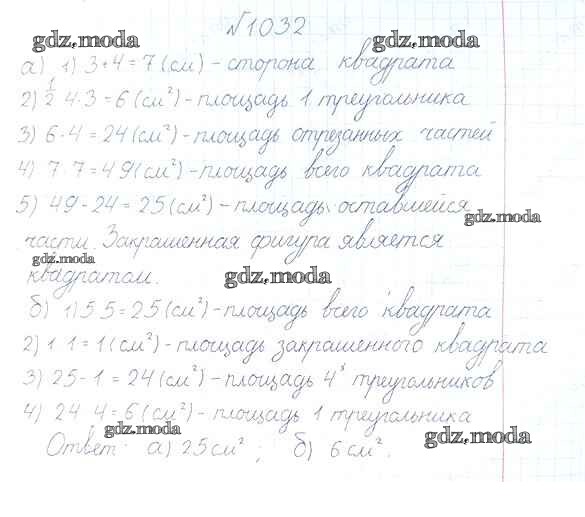 №1032
gdz.moda gdz.moda
а) 1) 3+4=7(см) - сторона квадрата
2) 1/2 4·3=6(см²) - площадь 1 треугольника
3) 6·4=24(см²) - площадь отрезанных частей
4) 7·7=49(см²) - площадь всего квадрата
5) 49-24=25(см²) - площадь оставшейся
gdz.moda
части. Закрашенная фигура является
gdz.moda
квадратом.
gdz.moda
б) 1) 5 5=25(см²) - площадь всего квадрата
2) 1 1=1(см²) - площадь закрашенного квадрата
3) 25-1=24(см²) - площадь 4ˣ треугольников
4) 24 4=6(см²) - площадь 1 треугольника
gdz.moda gdz.moda
Ответ: а) 25см²; б) 6см².